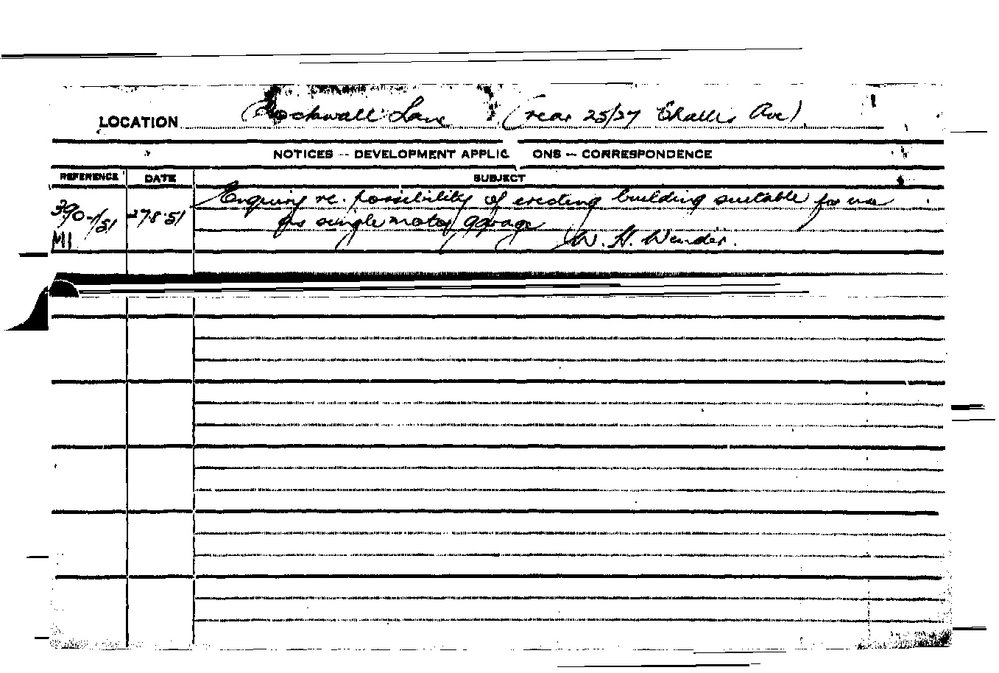 LOCATION Rockwall Lane (rear 25/27 Challis Ave)
NOTICES -- DEVELOPMENT APPLIC ONS -- CORRESPONDENCE
REFERENCE DATE SUBJECT
390-/51 27.8.51 Enquiry re. possibility of erecting building suitable for use
M1 for single motor garage W. H. Winder.